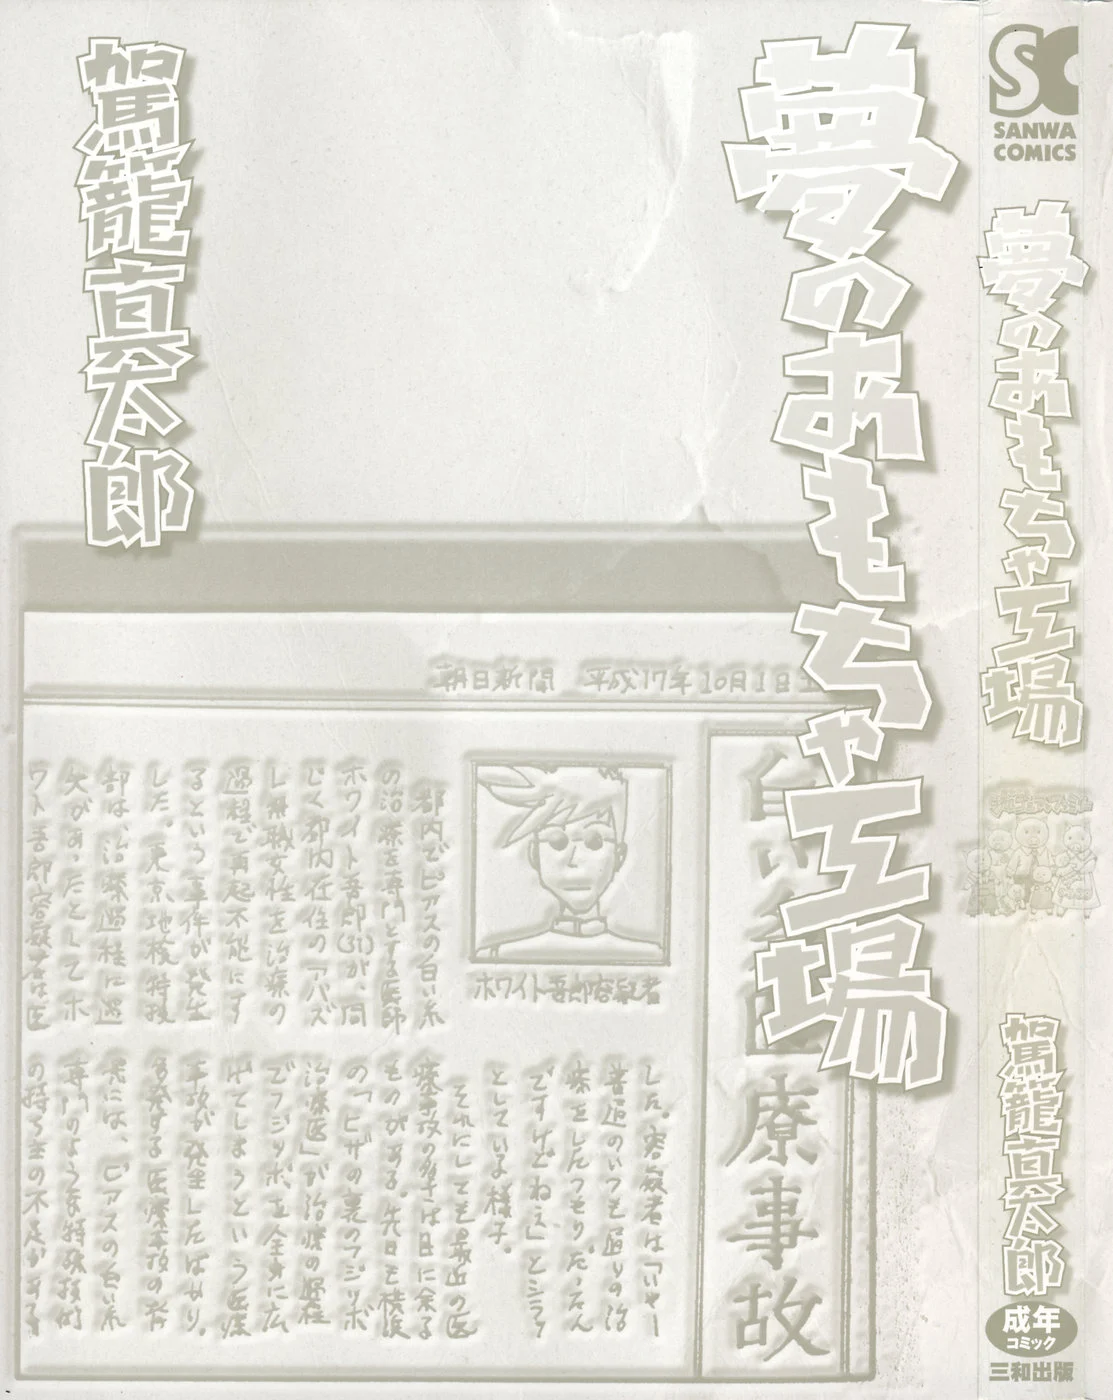 SC
SANWA
COMICS
夢のおもちゃ工場
駕籠真太郎
成年
コミック
三和出版
夢のおもちゃ工場
駕籠真太郎
朝日新聞 平成17年10月1日土
白い糸医療事故
ホワイト吾郎容疑者
都内でピアスの白い糸
の治療を専門とする医師
ホワイト吾郎(31)が、同
じく都内在住のアパズ
レ無職女性を治療の
過程で再起不能にす
るという事件が発生
した。東京地検特捜
部は、治療過程に過
失があったとしてホ
ワイト吾郎容疑者は医
した。容疑者は「いやー
普通のいつも通りの治
療をしたつもりだったん
ですけどねぇ」とシラフ
としている様子。
それにしても最近の医
療事故の多さは目に余る
ものがある。先日も横浜
の「ヒザの裏のフジツボ
治療医」が治療の過程
でフジツボを全身に広
げてしまうという医療
事故が発生したばかり。
多発する医療事故の背
景には、ピアスの白い糸
専門のような特殊技術
の持ち主の不足がある